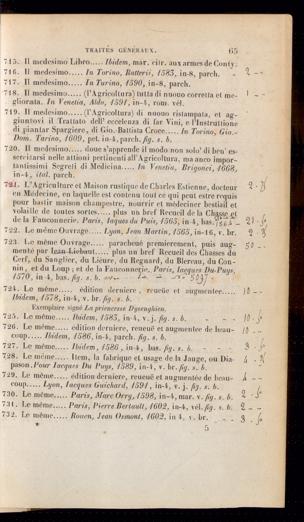 TRAITÉS GÉNÉRAUX. 65
715. Il medesimo Libro..... Ibidem, mar. citr. aux armes de Conty.
716. Il medesimo..... In Torino, Ratterii, 1583, in-8, parch. 2 --
717. Il medesimo..... In Torino, 1590, in-8, parch.
718. Il medesimo..... (l'Agricoltura) tutta di nuovo corretta et me- 1 --
gliorata. In Venetia, Aldo, 1591, in-4, rom. vél.
719. Il medesimo..... (l'Agricoltura) di nuovo ristampata, et ag-
giuntovi il Trattato dell' eccelenza di far Vini, e l'Instruttione
di piantar Spargiere, di Gio. Battista Croce..... In Torino, Gio.-
Dom. Tarino, 1609, pet. in-4, parch. fig. s. b.
720. Il medesimo..... doue s'apprende il modo non solo' di ben' es-
serciarsi nelle attioni pertinenti all'Agricoltura, ma anco impor-
tantissimi Segreti di Medicina..... In Venetia, Brigonci, 1668,
in-4, ital. parch.
721. L'Agriculture et Maison rustique de Charles Estienne, docteur
en Médecine, en laquelle est contenu tout ce qui peut estre requis
pour bastir maison champestre, nourrir et médeciner bestial et
volaille de toutes sortes..... plus un bref Recueil de la Chasse et
de la Fauconnerie. Paris, Iaques du Puis, 1565, in-4, bas.
722. Le même Ouvrage..... Lyon, Jean Martin, 1565, in-16, v. br.
723. Le même Ouvrage..... parachevé premierement, puis aug- 50 --
menté par Iean Liebaut..... plus un bref Recueil des Chasses du
Cerf, du Sanglier, du Lièure, du Regnard, du Blereau, du Con-
nin, et du Loup; et de la Fauconnerie, Paris, Iacques Du-Puys,
1570, in-4, bas. fig. s. b.
724. Le même..... édition derniere, reueüe et augmentee..... 10 --
Ibidem, 1578, in-4, v. br. fig. s. b.
Exemplaire signé La princesse Dysenghien.
725. Le même..... Ibidem, 1583, in-4, v. j. fig. s. b.
726. Le même..... édition derniere, reueuë et augmentée de beau-
coup..... Ibidem, 1586, in-4, parch. fig. s. b.
727. Le même..... Ibidem, 1586, in-4, bas. fig. s. b.
728. Le même..... Item, la fabrique et usage de la Jauge, ou Dia-
pason. Pour Iacques Du Puys, 1589, in-4, v. br. fig. s. b.
729. Le même..... édition derniere, reueuë et augmentée de beau- 4 --
coup..... Lyon, Iacques Guichard, 1591, in-4, v. j. fig. s. b.
730. Le même..... Paris, Marc Orry, 1598, in-4, mar. v. fig. s. b.
731. Le même..... Paris, Pierre Bertault, 1602, in-4, vél. fig. s. b. 2 --
732. Le même..... Rouen, Jean Osmont, 1602, in 4, v. br.
* 5